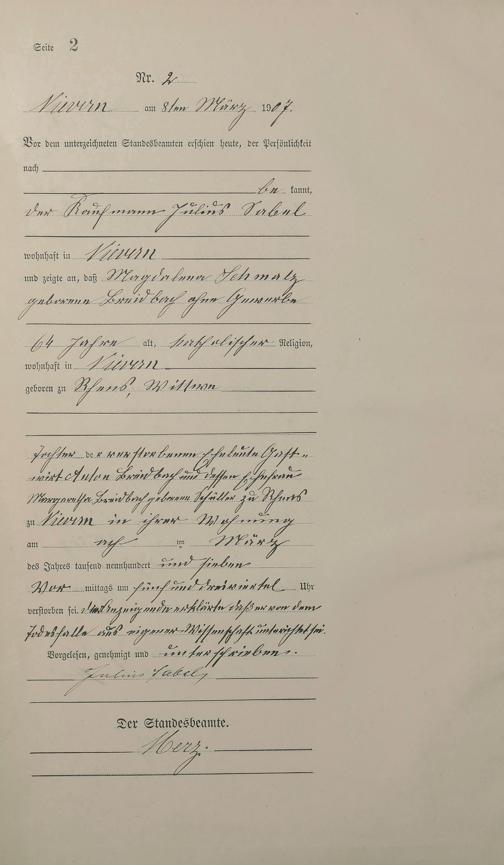 Seite 2
Nr. 2
Nievern am 8ten März 1907.
Vor dem unterzeichneten Standesbeamten erschien heute, der Persönlichkeit
nach
be kannt,
der Kaufmann Julius Sabel
wohnhaft in Nievern
und zeigte an, daß Magdalena Schmalz
geborene Breidbach ohne Gewerbe
64 Jahre alt, katholischer Religion,
wohnhaft in Nievern
geboren zu Rhens, Wittwe
Tochter der verstorbenen Eheleute Gast-
wirt Anton Breidbach und dessen Ehefrau
Margaretha Breidbach geborene Schüller zu Rhens
zu Nievern in ihrer Wohnung
am März
des Jahres tausend neunhundert und sieben
Vor mittags um fünf und dreiviertel Uhr
verstorben sei. Der Anzeigende erklärte daß er von dem
Todesfalle aus eigener Wissenschaft unterrichtet sei.
Vorgelesen, genehmigt und unterschrieben.
Julius Sabel
Der Standesbeamte.
Merz.